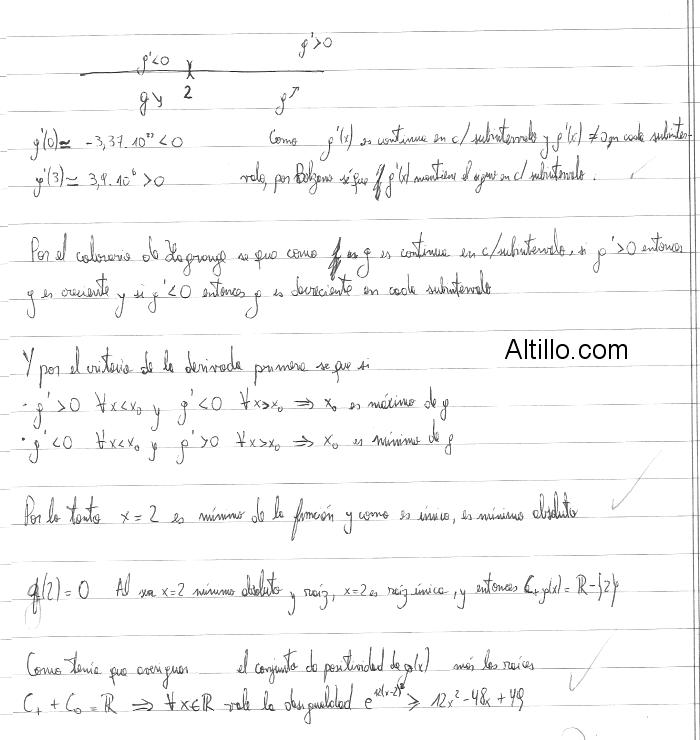 g'<0 g'>0
g↘ 2 g↗
g'(0) ≃ -3,37.10²³ < 0 Como g'(x) es continua en c/ subintervalo y g'(x) ≠ 0 en cada subinter-
g'(3) ≃ 3,9.10⁶ > 0 valo, por Bolzano se que g'(x) mantiene el signo en c/ subintervalo.
Por el colorario de Lagrange se que como g es continua en c/subintervalo, si g'>0 entonces
g es creciente y si g'<0 entonces g es decreciente en cada subintervalo
Altillo.com
Y por el criterio de la derivada primera se que si
· g'>0 ∀x<x₀ y g'<0 ∀x>x₀ ⇒ x₀ es máximo de g
· g'<0 ∀x<x₀ y g'>0 ∀x>x₀ ⇒ x₀ es mínimo de g
Por lo tanto x=2 es mínimo de la función y como es único, es mínimo absoluto
g(2)=0 Al ser x=2 mínimo absoluto y raíz, x=2 es raíz única, y entonces C₊g(x) = ℝ-{2}
Como tenía que averiguar el conjunto de positividad de g(x) más las raíces
C₊ + C₀ = ℝ ⇒ ∀x∈ℝ vale la desigualdad ≥ 12x²-48x+49